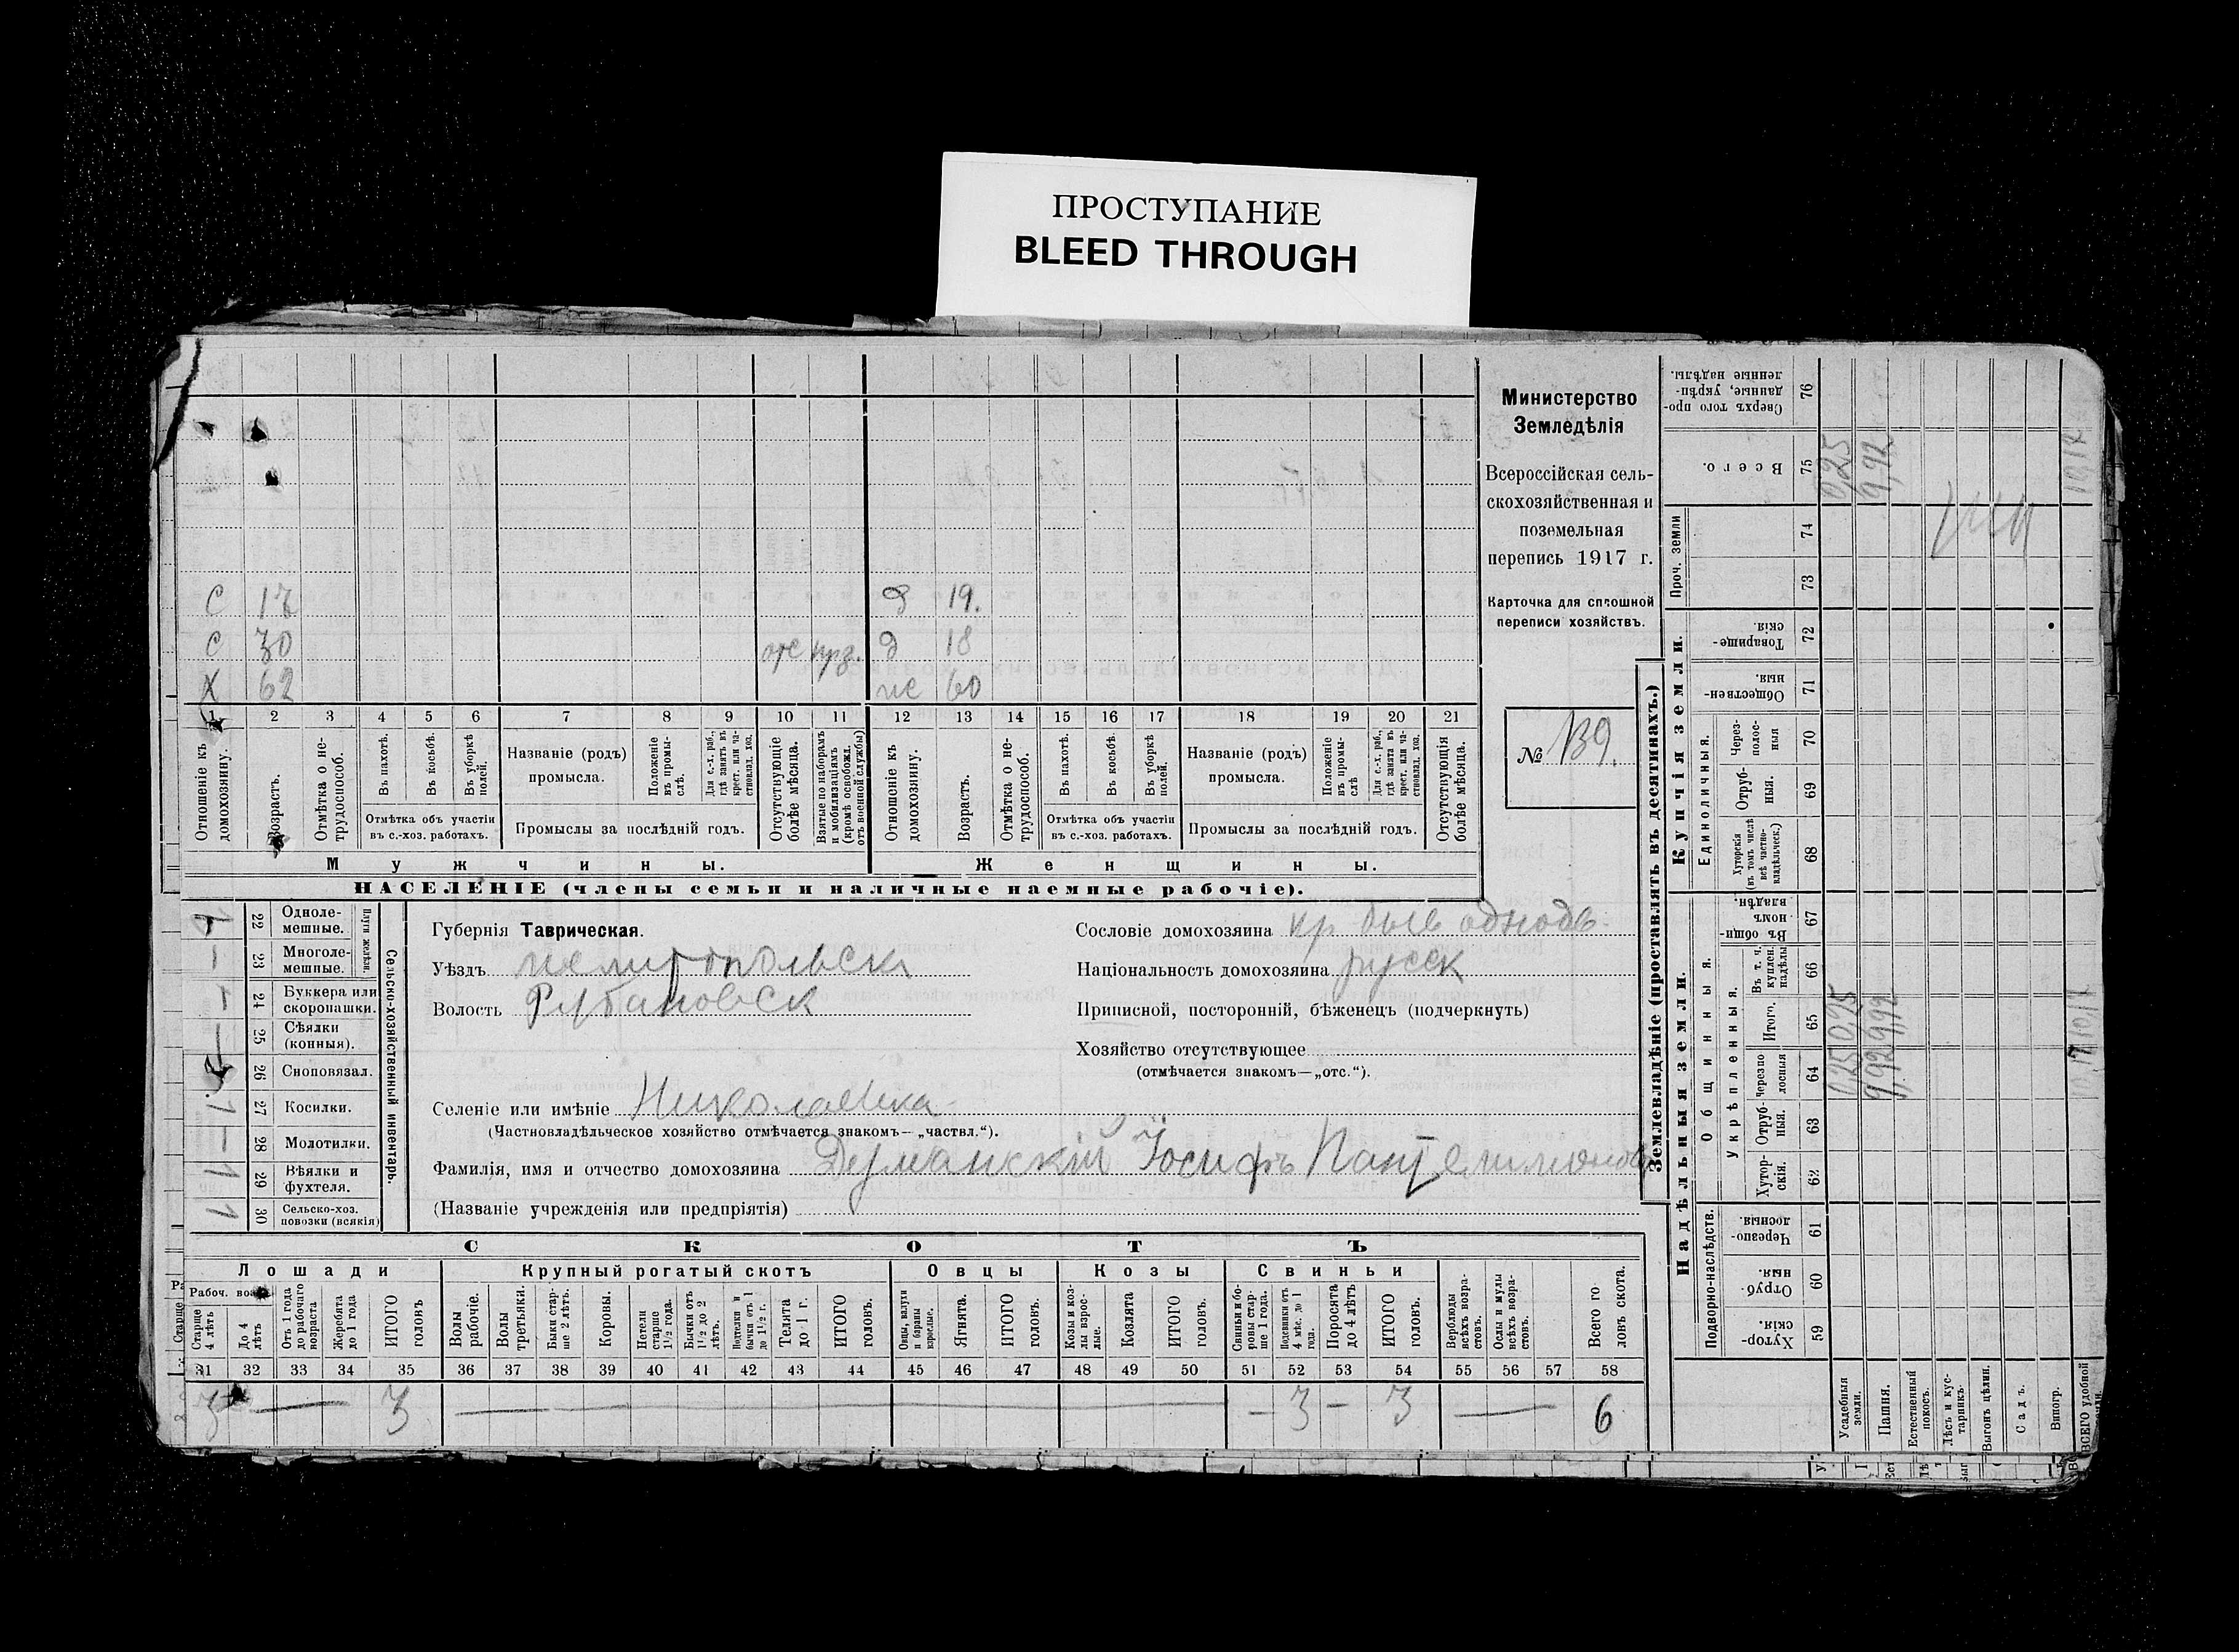 ПРОСТУПАНИЕ
BLEED THROUGH
Министерство
Земледѣлія
Всероссійская сель-
скохозяйственная и
поземельная
перепись 1917 г.
Карточка для сплошной
переписи хозяйствъ.
№ 139.
С 17 д 19.
С 30 отс д 18
Х 62 60
1 2 3 4 5 6 7 8 9 10 11 12 13 14 15 16 17 18 19 20 21
Отношеніе къ домохозяину.
Возрастъ.
Отмѣтка о не-трудоспособ.
Въ пахотѣ.
Въ косьбѣ.
Въ уборкѣ полей.
Отмѣтка объ участіи
въ с.-хоз. работахъ.
Названіе (родъ)
промысла.
Положеніе въ промы-слѣ.
Для с.-х. раб., гдѣ занятъ въ крест. или ча-стновлад. хоз.
Промыслы за послѣдній годъ.
Отсутствующіе болѣе мѣсяца.
Взятые по наборамъ и мобилизаціямъ (кромѣ освобожд. отъ военной службы)
Отношеніе къ домохозяину.
Возрастъ.
Отмѣтка о не-трудоспособ.
Въ пахотѣ.
Въ косьбѣ.
Въ уборкѣ полей.
Отмѣтка объ участіи
въ с.-хоз. работахъ.
Названіе (родъ)
промысла.
Положеніе въ промы-слѣ
Для с.-х. раб., гдѣ занята въ крест. или ча-стновлад. хоз.
Промыслы за послѣдній годъ.
Отсутствующія болѣе мѣсяца.
Мужчины. Женщины.
НАСЕЛЕНІЕ (члены семьи и наличные наемные рабочіе).
Сельско-хозяйственный инвентарь.
22 Одноле-мешные.
23 Многоле-мешные.
24 Буккера или скоропашки.
25 Сѣялки (конныя).
26 Сноповязал.
27 Косилки.
28 Молотилки.
29 Вѣялки и фухтеля.
30 Сельско-хоз. повозки (всякія)
Губернія Таврическая.
Уѣздъ мелитопольск
Волость Рубановск
Сословіе домохозяина кр. быв
Національность домохозяина русск
Приписной, посторонній, бѣженецъ (подчеркнуть)
Хозяйство отсутствующее
(отмѣчается знакомъ—„отс.“).
Селеніе или имѣніе Николаевка
(Частновладѣльческое хозяйство отмѣчается знакомъ—„частвл.“).
Фамилія, имя и отчество домохозяина Думанскій Іосифъ Пантелимонов
(Названіе учрежденія или предпріятія)
СКОТЪ
Лошади Крупный рогатый скотъ Овцы Козы Свиньи
Рабоч. воз.
Старше 4 лѣтъ
До 4 лѣтъ
Отъ 1 года до рабочаго возраста
Жеребята до 1 года
ИТОГО головъ
Волы рабочіе.
Волы третьяки.
Быки стар-ше 2 лѣтъ.
Коровы.
Нетели старше 1½ года.
Бычки отъ 1½ до 2 лѣтъ.
Подтелки и бычки отъ 1 до 1½ г.
Телята до 1 г.
ИТОГО головъ.
Овцы, валухи и бараны взрослые.
Ягнята.
ИТОГО головъ.
Козы и коз-лы взрос-лые.
Козлята
ИТОГО головъ.
Свиньи и бо-ровы стар-ше 1 года.
Подсвинки отъ 4 мѣс. до 1 года.
Поросята до 4 лѣтъ
ИТОГО головъ.
Верблюды всѣхъ возра-стовъ.
Ослы и мулы всѣхъ возра-стовъ.
Всего го-ловъ скота.
31 32 33 34 35 36 37 38 39 40 41 42 43 44 45 46 47 48 49 50 51 52 53 54 55 56 57 58
3 — 3 — — 3 — 3 — 6
Землевладѣніе (проставлять въ десятинахъ.)
Надѣльныя земли. Купчія земли. Проч. земли
Подворно-наслѣдств.
Общинныя.
Укрѣпленныя.
Единоличныя.
Хутор-скія. 59
Отруб-ныя. 60
Черезпо-лосныя. 61
Хутор-скія. 62
Отруб-ныя. 63
Черезпо-лосныя 64
Итого. 65
Въ т. ч. куплен. надѣлы 66
Въ общин-номъ владѣн. 67
Хуторскія (въ томъ числѣ всѣ частно-владѣльческ.) 68
Отруб-ныя. 69
Через-полос-ныя 70
Обществен-ныя. 71
Товарище-скія. 72
73
74
Всего. 75
Сверхъ того про-данные, укрѣп-ленные надѣлы. 76
Усадебныя земли. 0,25 0,25 0,25
Пашня. 9,92 9,92 9,92
Естественный покосъ.
Лѣсъ и кус-тарникъ.
Выгонъ цѣлин.
Садъ.
Виногр.
ВСЕГО удобной земли. 10,17 10,17 10,17